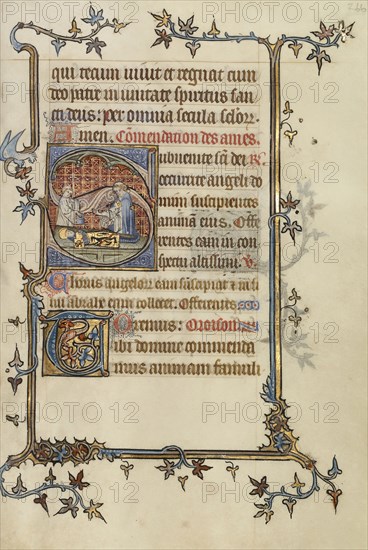 qui tecum uiuit et regnat cum
deo patre in unitate spiritus san
cti deus: per omnia secula selorꝝ.
Amen. Comendation des ames.
Subuenite sci dei R̃
occurite angeli do
mini suscipientes
animā eius. Offe
rentes eam in con
spectu altissimi. V.
Chorus angelorꝝ eam suscipiat et in si
nu abrahe eam collocet. Offerentes
Oremus: Oroison
Tibi domine commenda
mus animam famuli
PHOTO 12